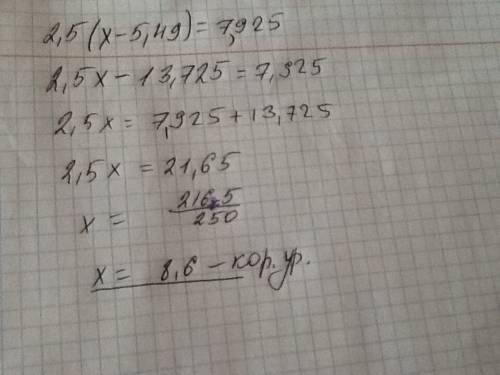 2,5(x-5,49)=7,925
2,5x-13,725=7,925
2,5x=7,925+13,725
2,5x=21,65
x=2165/250
x=8,6-кор.ур.